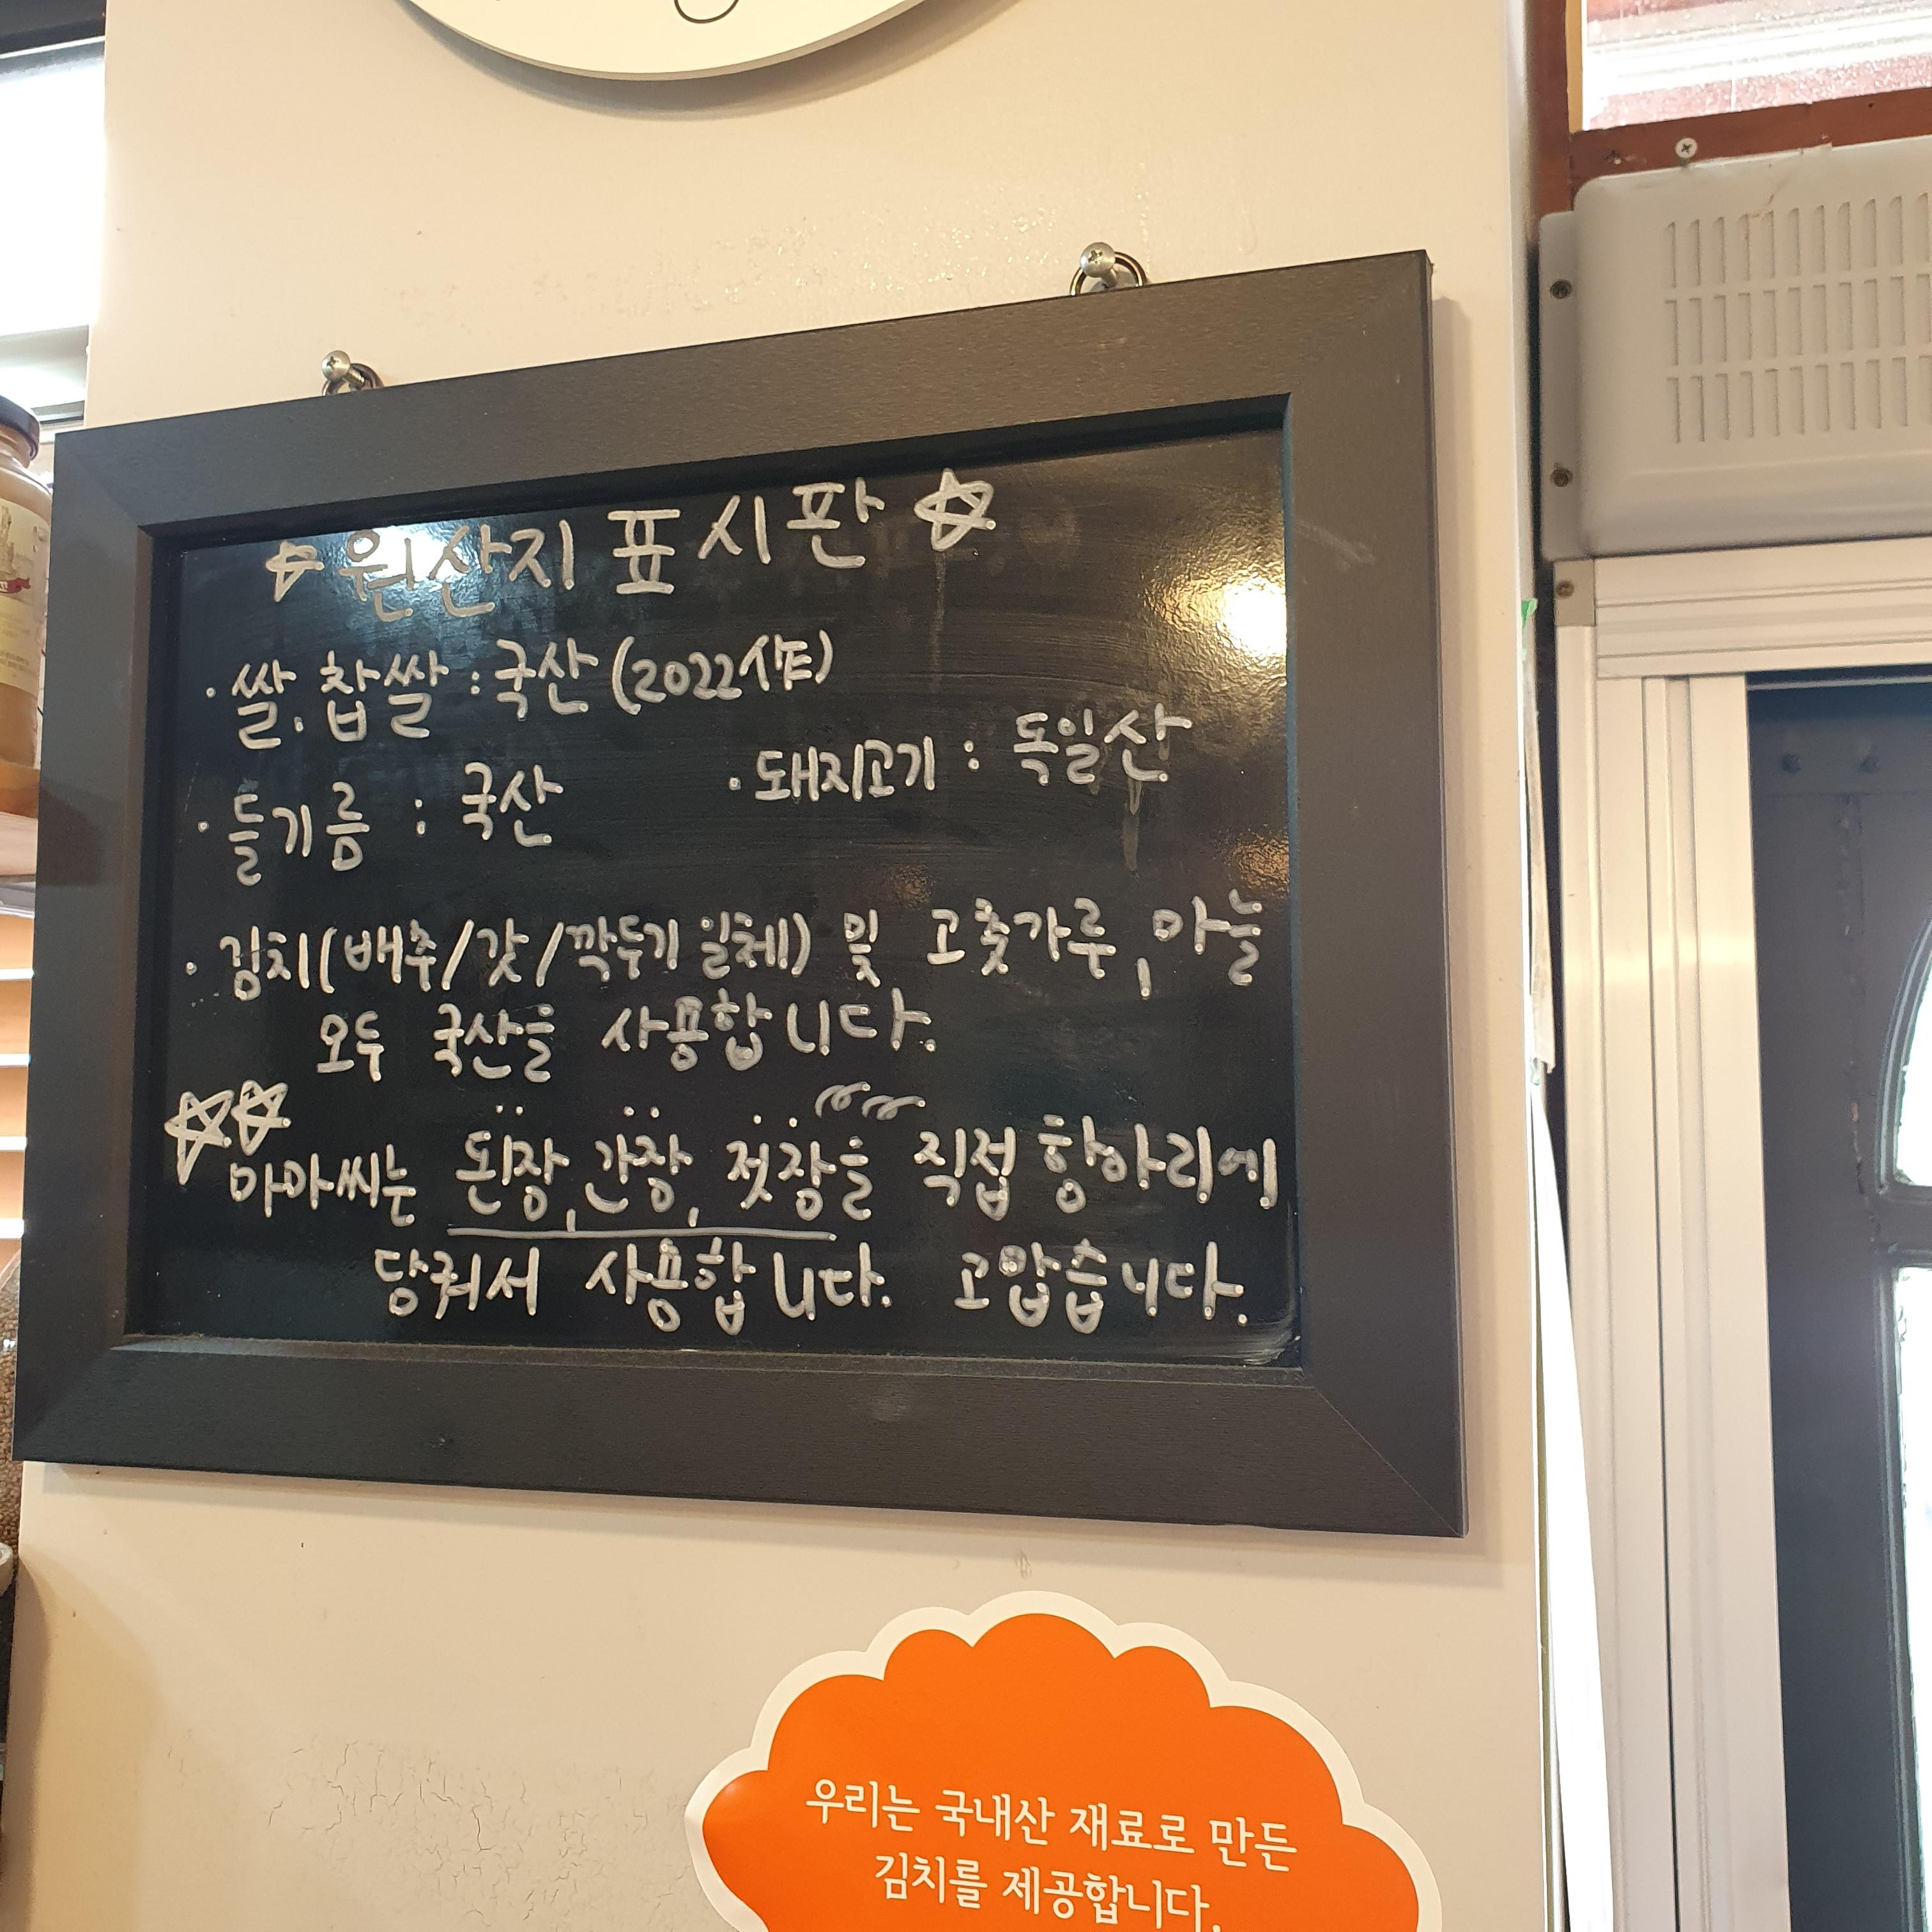 ☆ 원산지 표시판 ☆
· 쌀, 찹쌀 : 국산 (2022산)
· 들기름 : 국산 · 돼지고기 : 독일산
· 김치 (배추/갓/깍두기 일체) 및 고춧가루, 마늘
모두 국산을 사용합니다.
☆☆
마마씨는 된장, 간장, 젓장을 직접 항아리에
담궈서 사용합니다. 고맙습니다.
우리는 국내산 재료로 만든
김치를 제공합니다.